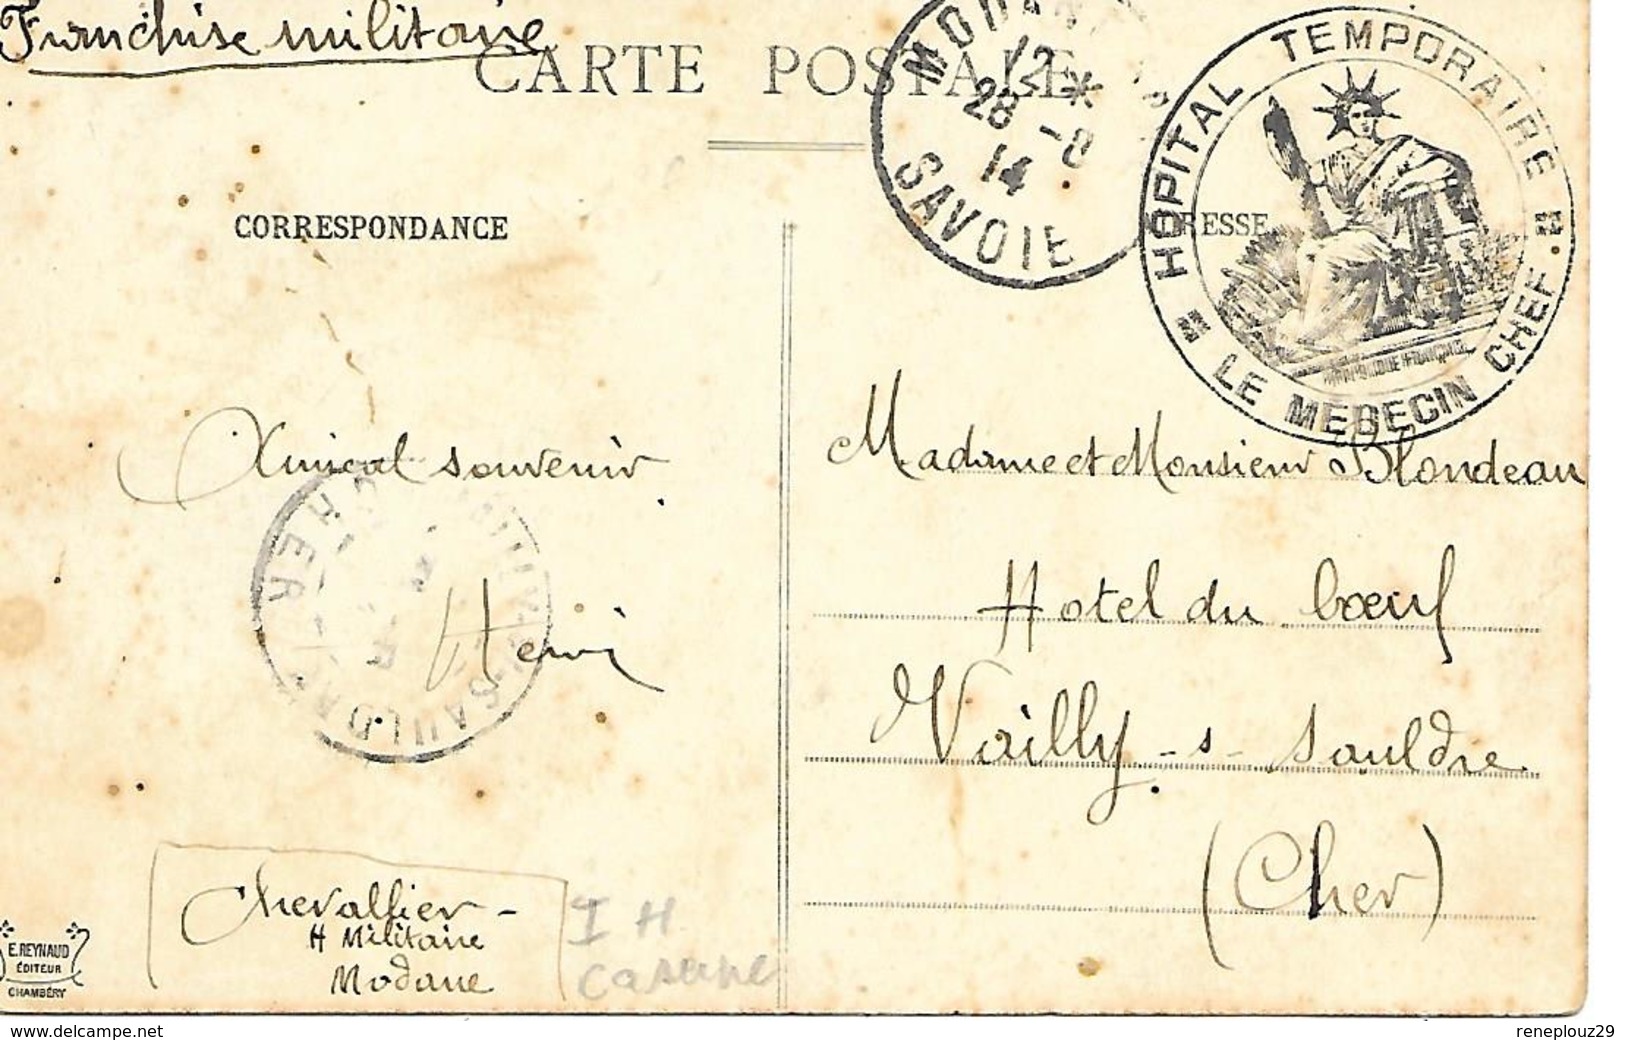 Franchise militaire
CARTE POSTALE
12 *
28 -8
14
SAVOIE
HOPITAL TEMPORAIRE
LE MEDECIN CHEF
CORRESPONDANCE
RESSE
Amical souvenir
Henri
CHER
Madame et Monsieur Blondeau
Hotel du bœuf
Vailly-s-Sauldre
(Cher)
Chevallier -
H Militaire
Modane
I H
caserne
E.REYNAUD
ÉDITEUR
CHAMBÉRY
delcampe.net
reneplouz29